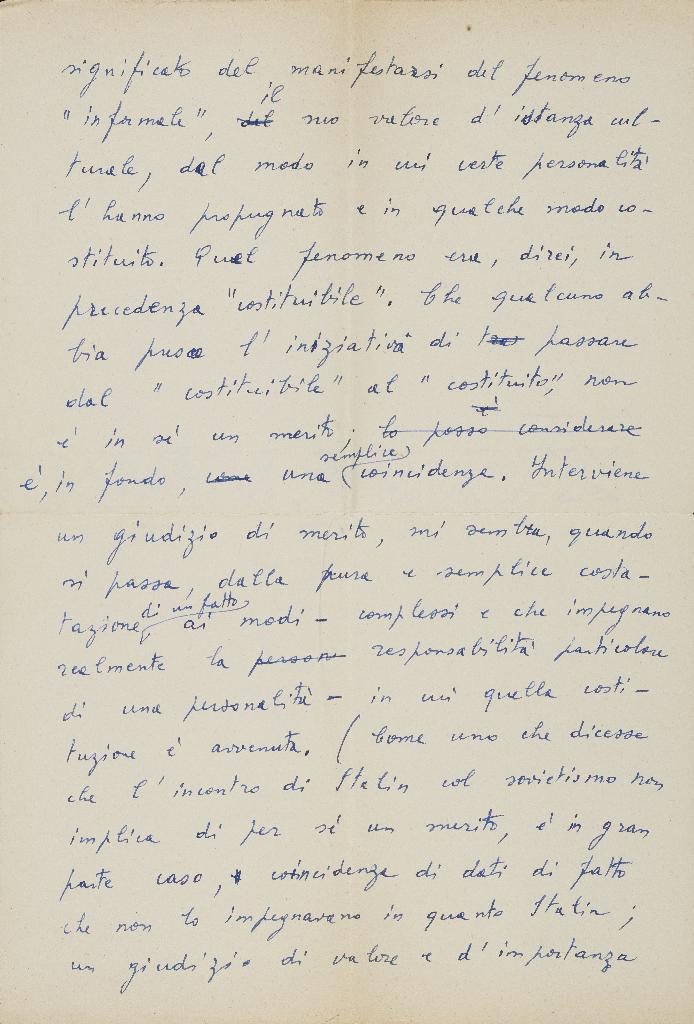 significato del manifestarsi del fenomeno
il
"informale", del suo valore d' istanza cul-
turale, dal modo in cui certe personalità
l' hanno propugnato e in qualche modo co-
stituito. Quel fenomeno era, direi, in
precedenza "costituibile". Che qualcuno ab-
bia preso l' iniziativa di tra passare
dal "costituibile" al "costituito", non
è in sé un merito; lo posso considerare
è
è, in fondo, come una semplice coincidenza. Interviene
un giudizio di merito, mi sembra, quando
si passa, dalla pura e semplice costa-
tazione di un fatto, ai modi – complessi e che impegnano
realmente la person responsabilità particolare
di una personalità – in cui quella costi-
tuzione è avvenuta. (Come uno che dicesse
che l' incontro di Stalin col sovietismo non
implica di per sé un merito, è in gran
parte caso, coincidenza di dati di fatto
che non lo impegnavano in quanto Stalin;
un giudizio di valore e d' importanza